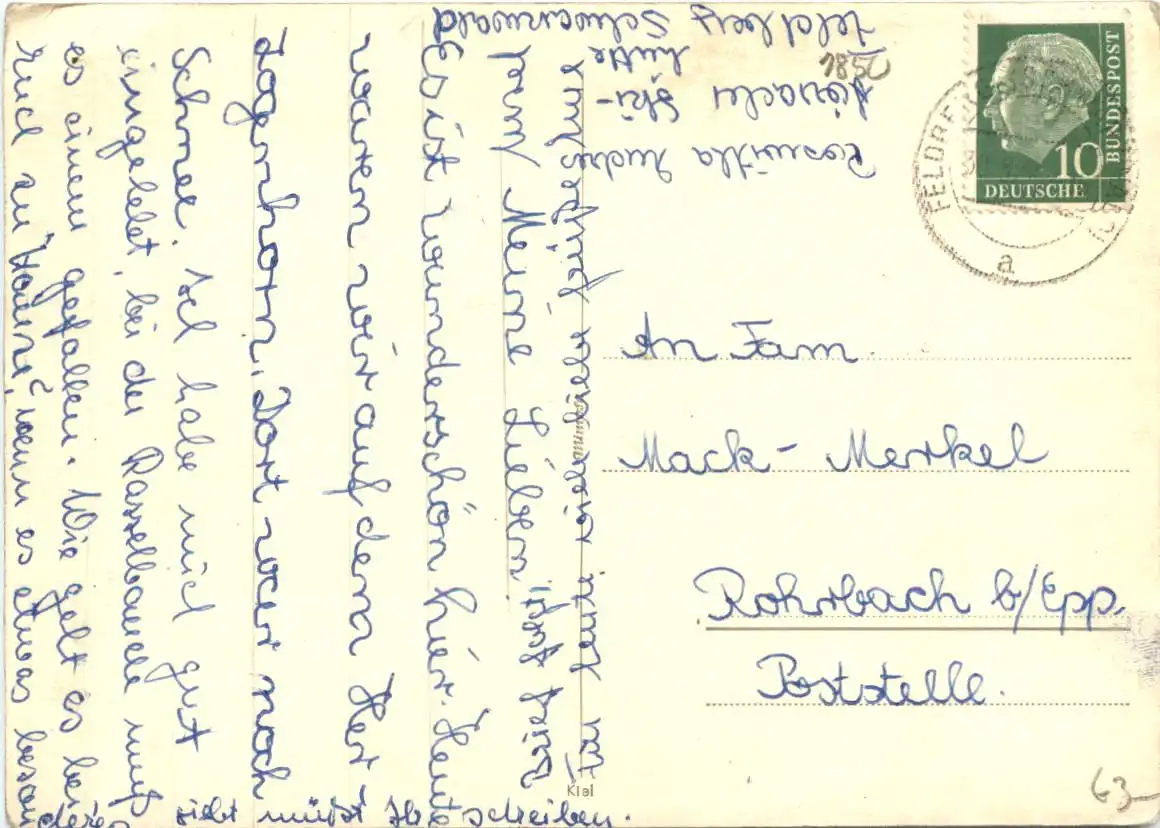 Roswitha Andris
Növacler Ski-
hütte
Feldberg
Schwarzwald
1850
BUNDESPOST
10
DEUTSCHE
FELDBERG
a
An Fam.
Mack-Merkel
Rohrbach b/Epp.
Poststelle.
Meine Lieben!
Es ist wunderschön hier. Heute
waren wir auf dem Her-
zogenhorn. Dort war noch
Schnee. Ich habe mich gut
eingelebt, bei der Rasselbande muß
es einem gefallen. Wie geht es bei
Euch zu Hause, wenn es etwas beson
deres gibt müßt Ihr schreiben.
Für heute viele liebe Grüße
Kiel
63